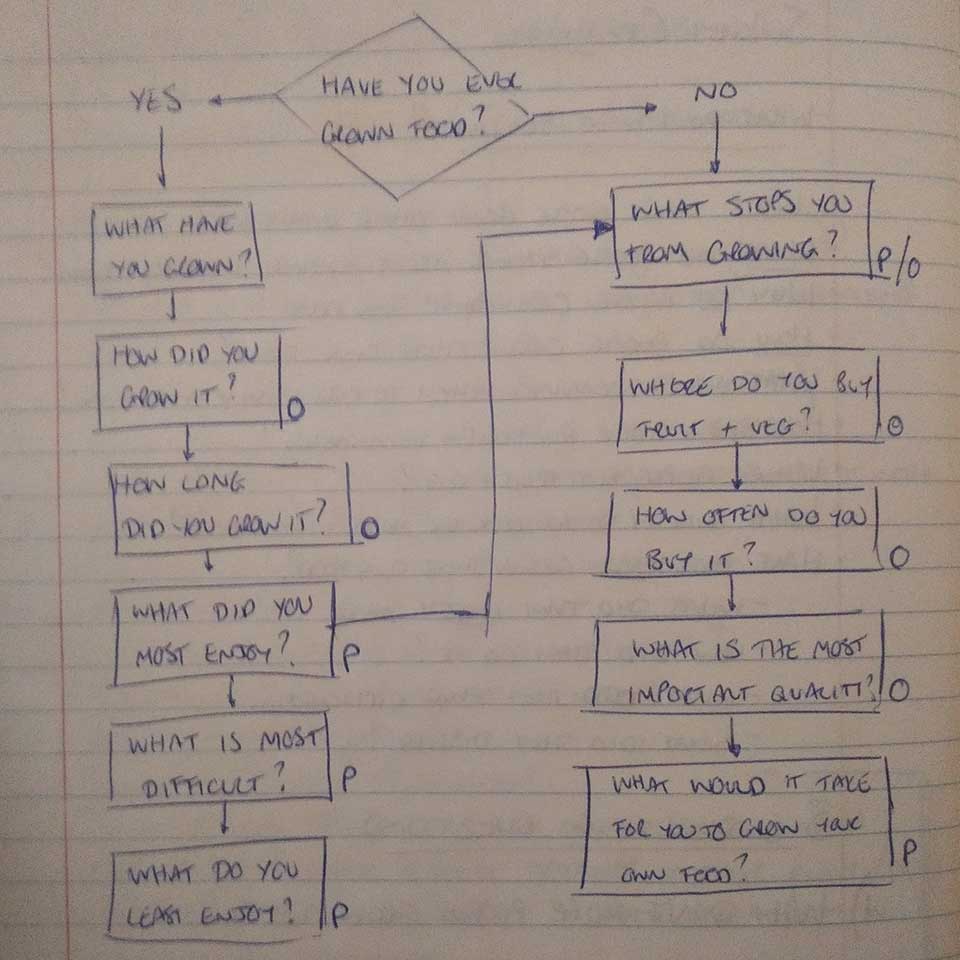 HAVE YOU EVER
GROWN FOOD?
YES
NO
WHAT HAVE
YOU GROWN?
HOW DID YOU
GROW IT?
O
HOW LONG
DID YOU GROW IT?
O
WHAT DID YOU
MOST ENJOY?
P
WHAT IS MOST
DIFFICULT?
P
WHAT DO YOU
LEAST ENJOY?
P
WHAT STOPS YOU
FROM GROWING?
P/O
WHERE DO YOU BUY
FRUIT + VEG?
O
HOW OFTEN DO YOU
BUY IT?
O
WHAT IS THE MOST
IMPORTANT QUALITY?
O
WHAT WOULD IT TAKE
FOR YOU TO GROW YOUR
OWN FOOD?
P